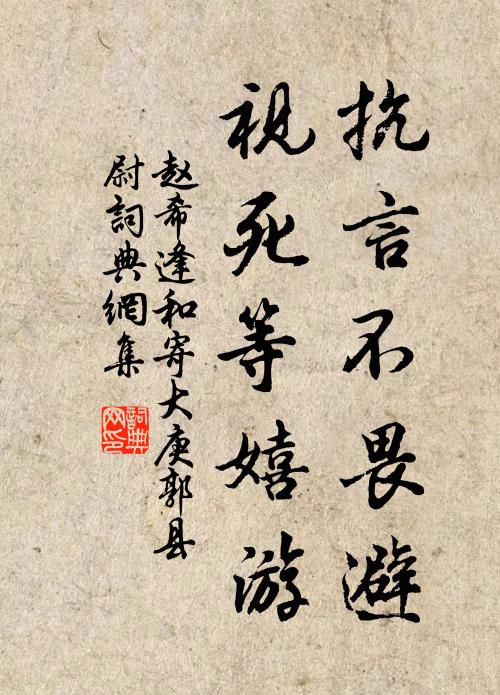 抗言不畏避
视死等嬉游
赵希逢和寄大庾郭县
尉詞典網集
詞典
网印